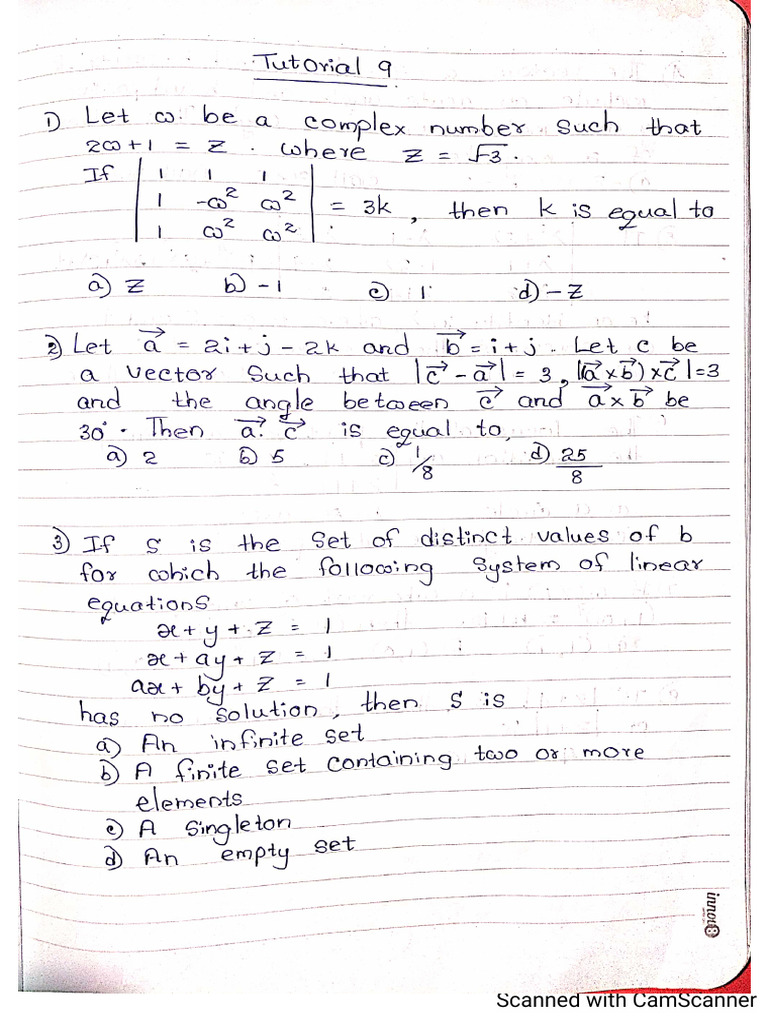 Tutorial 9
1) Let ω be a complex number such that
2ω+1 = z . where z = √-3.
If | 1 1 1 |
| 1 -ω² ω² | = 3k, then k is equal to
| 1 ω² ω² |
a) z b) -1 c) 1 d) -z
2) Let a⃗ = 2i+j-2k and b⃗ = i+j. Let c be
a vector such that |c⃗-a⃗| = 3, |(a⃗×b⃗)×c⃗|=3
and the angle between c⃗ and a⃗×b⃗ be
30°. Then a⃗. c⃗ is equal to,
a) 2 b) 5 c) 1/8 d) 25/8
3) If S is the set of distinct values of b
for which the following system of linear
equations
x+y+z = 1
x+ay+z = 1
ax+by+z = 1
has no solution, then S is
a) An infinite set
b) A finite set containing two or more
elements
c) A singleton
d) An empty set
Scanned with CamScanner